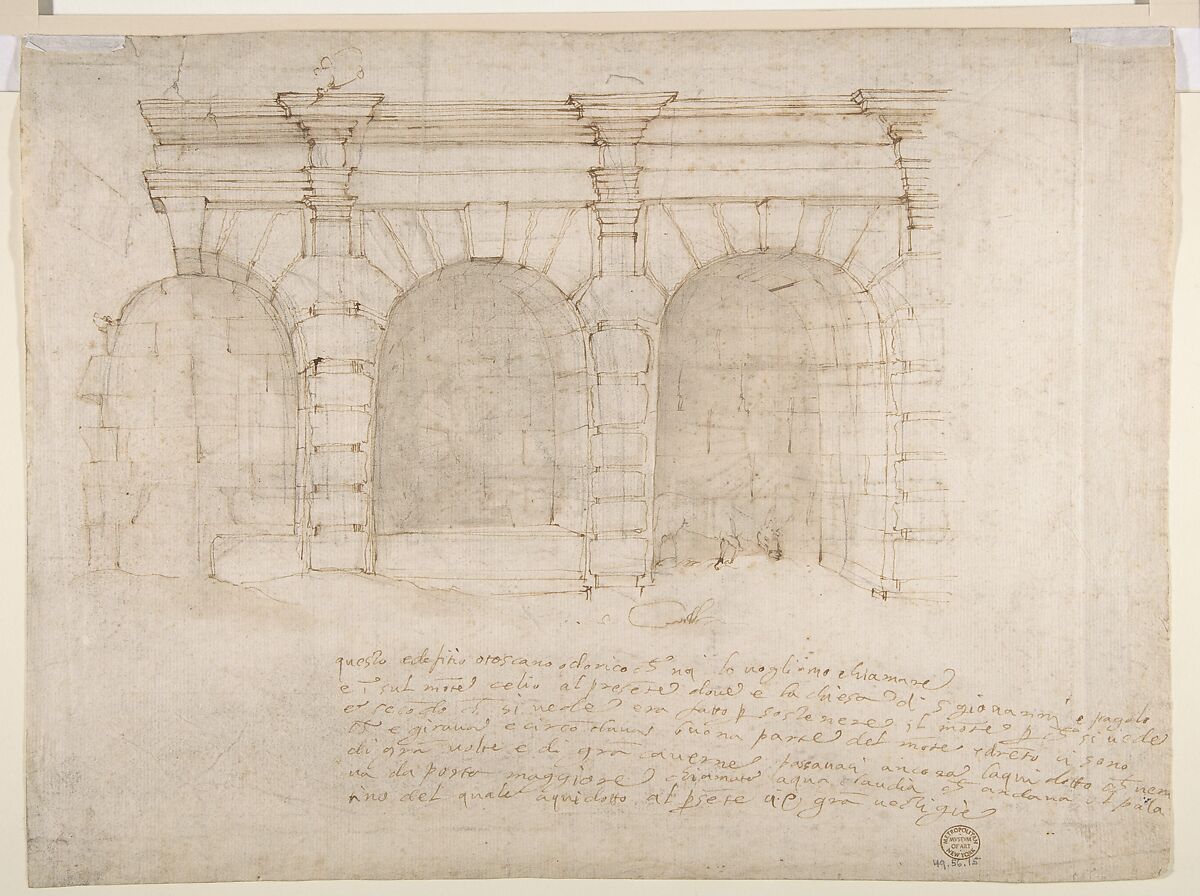 questo edefitio o toscano o dorico noi lo vogliamo chiamare
e sul monte celio al presente dove e la chiesa di s giovanni e pagolo
et secōdo si vede era fatto p sostenere il monte si vede
e girava e circōdava buona parte del monte edreto vi sono
di grā volte e di grā caverne passavaci ancora laquidotto
va da porta maggiore chiamato aqua claudia andava al pala
tino del quale aquidotto al presente grā vestigie
METROPOLITAN
MUSEUM
OF ART
NEW YORK
49.56.15